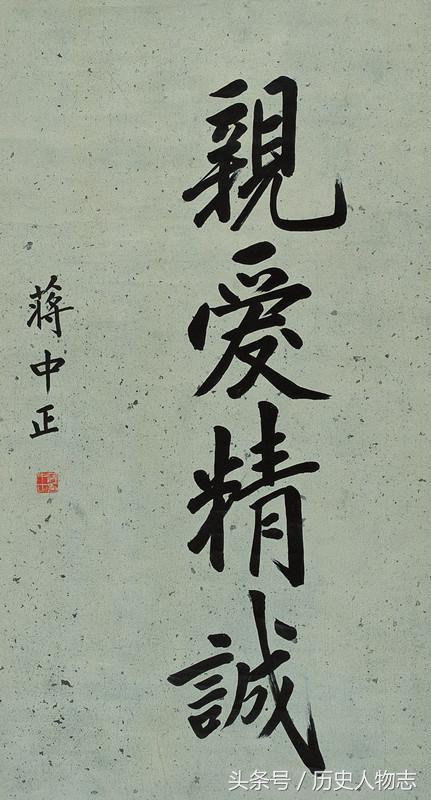 親愛精誠
蔣中正
头条号 / 历史人物志